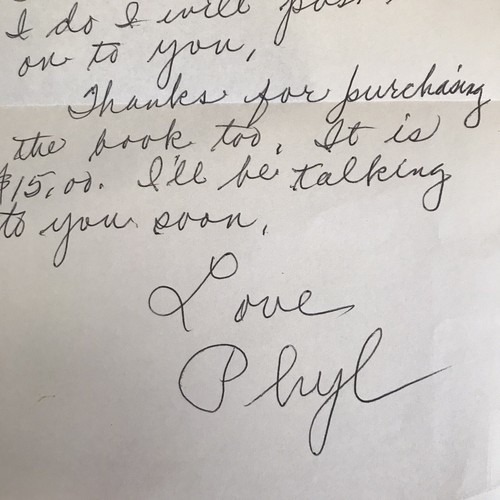 I do I will pass
on to you,
Thanks for purchasing
the book too. It is
$15.00. I'll be talking
to you soon,
Love
Phyl